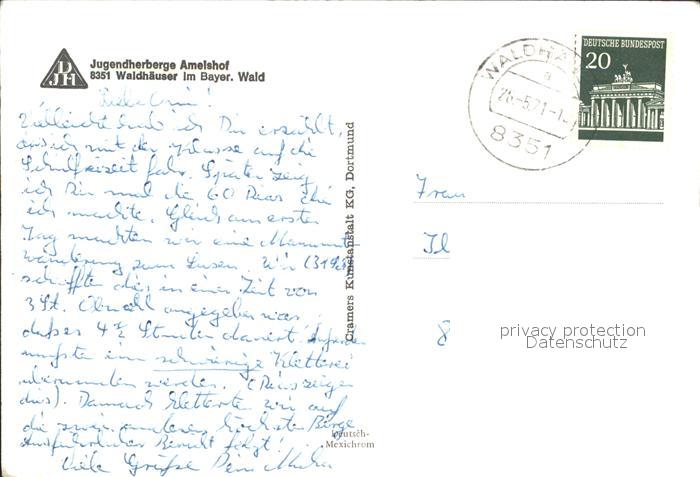 DJH
Jugendherberge Amelshof
8351 Waldhäuser im Bayer. Wald
Liebe Omi!
Vielleicht hab ich Dir erzählt,
das ich mit der Klasse auf die
Schulfreizeit fahr. Später zeig
ich Dir mal die 60 Dias die
ich machte. Gleich am ersten
Tag machten wir eine
wanderung zum Lusen. Wir
schafften dies in einer Zeit von
3 St. Obwohl angegeben war,
daß es 4 ½ Stunden dauert. Außerdem
mußte ein schwierige Kletterei
überwunden werden. (Dias zeigen
dies). Danach kletterten wir auf
die zwei anderen höchsten Berge
Ausführlicher Bericht folgt!
Viele Grüße Dein
Cramers Kunstanstalt KG, Dortmund
Deutsch-
Mexichrom
WALDHÄU
a
8351
DEUTSCHE BUNDESPOST
20
Frau
8
privacy protection
Datenschutz